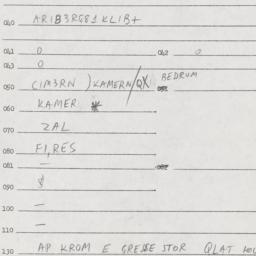 040 ARIB3RG81KLIB+
041 0 042 0
043 0
050 C(M3RN )KAMERN/QX: BEDRUM
060 KAMER
070 ZAL
080 FI,RES
081 —
090 $
100 —
110 —
130 AP KROM E GRESE STOR QLAT